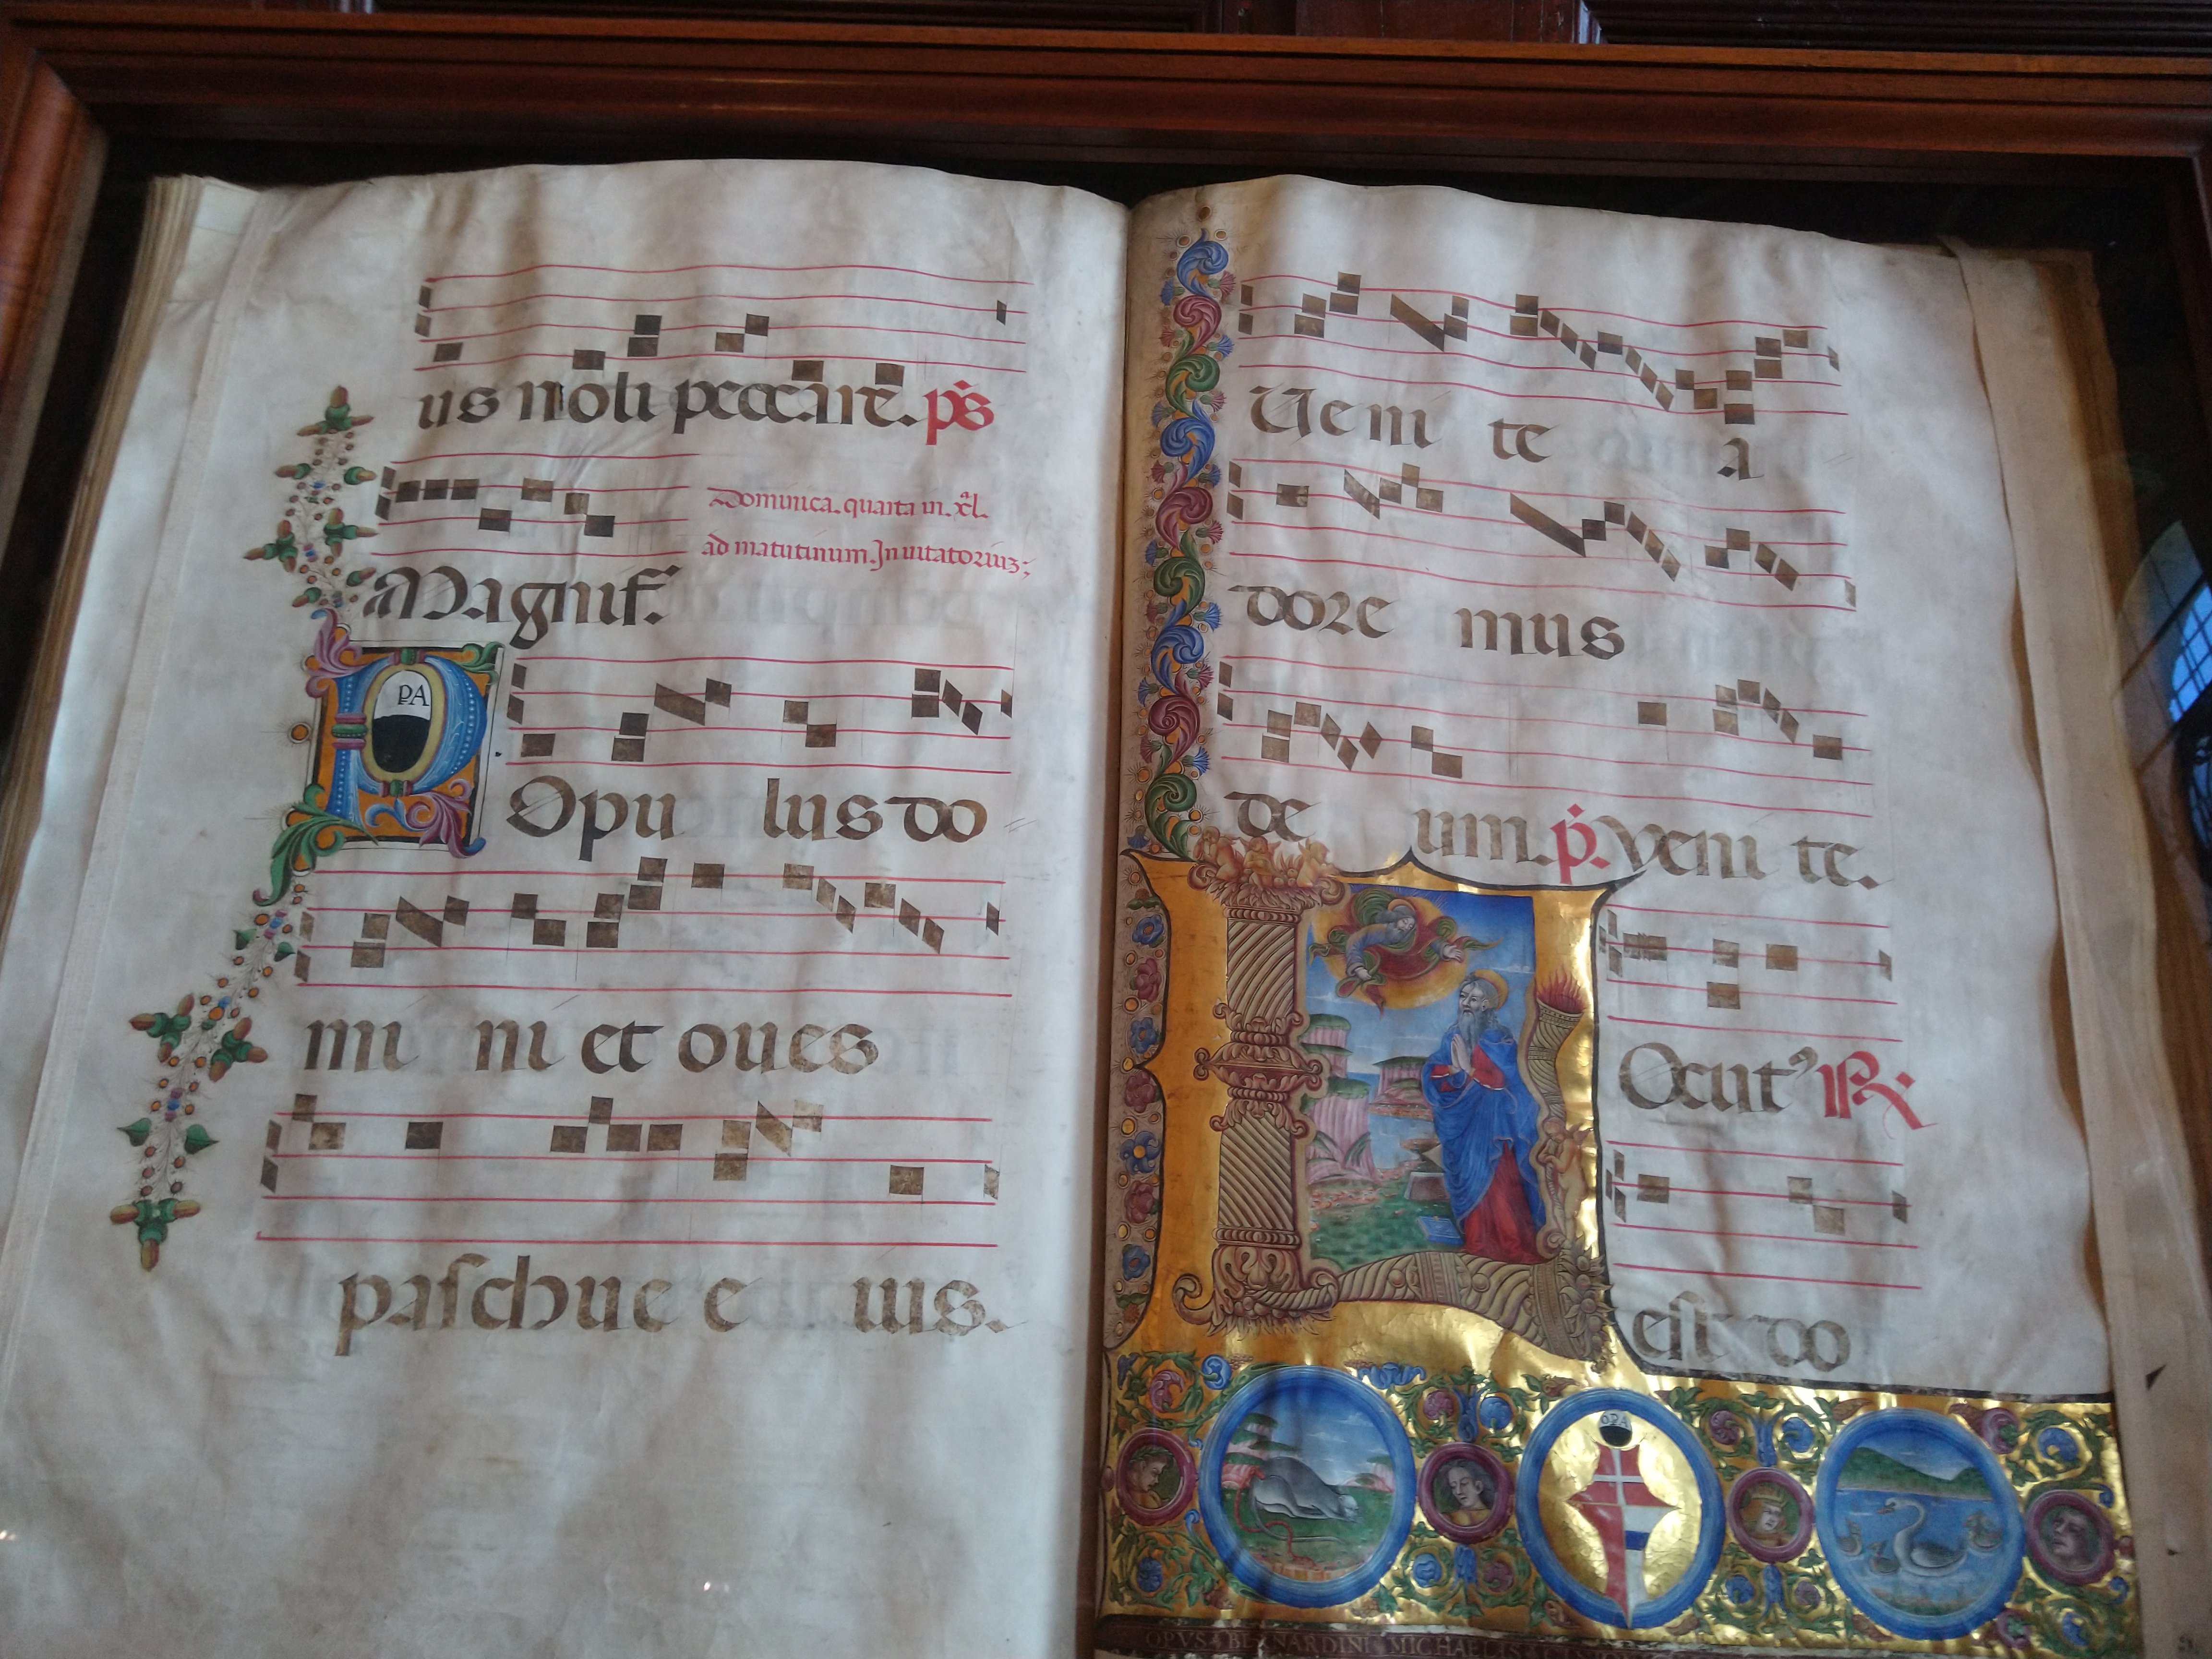 us noli peccare. ps
Dominica. quarta in. xl.
ad matutinum. Inuitatoriuz;
Magnif.
PA
P Opu lus do
mi ni et oues
paschue e ius.
Ueni te a
dore mus
de um. p. veni te.
L Ocut9 R.
est do
OPA
OPVS BERNARDINI MICHAELIS